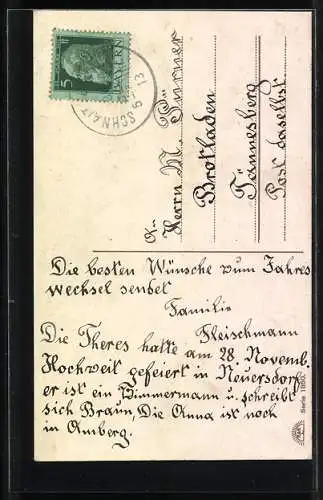 5
BAYERN
SCHNAIT
13
An
Herrn M. Turner
Brotladen
Tännesberg
Post daselbst.
Die besten Wünsche zum Jahres
wechsel sendet
Familie
Fleischmann
Die Theres hatte am 28. Novemb.
Hochzeit gefeiert in Neuersdorf
er ist ein Zimmermann u. schreibt
sich Braun, Die Anna ist noch
in Amberg.
Serie